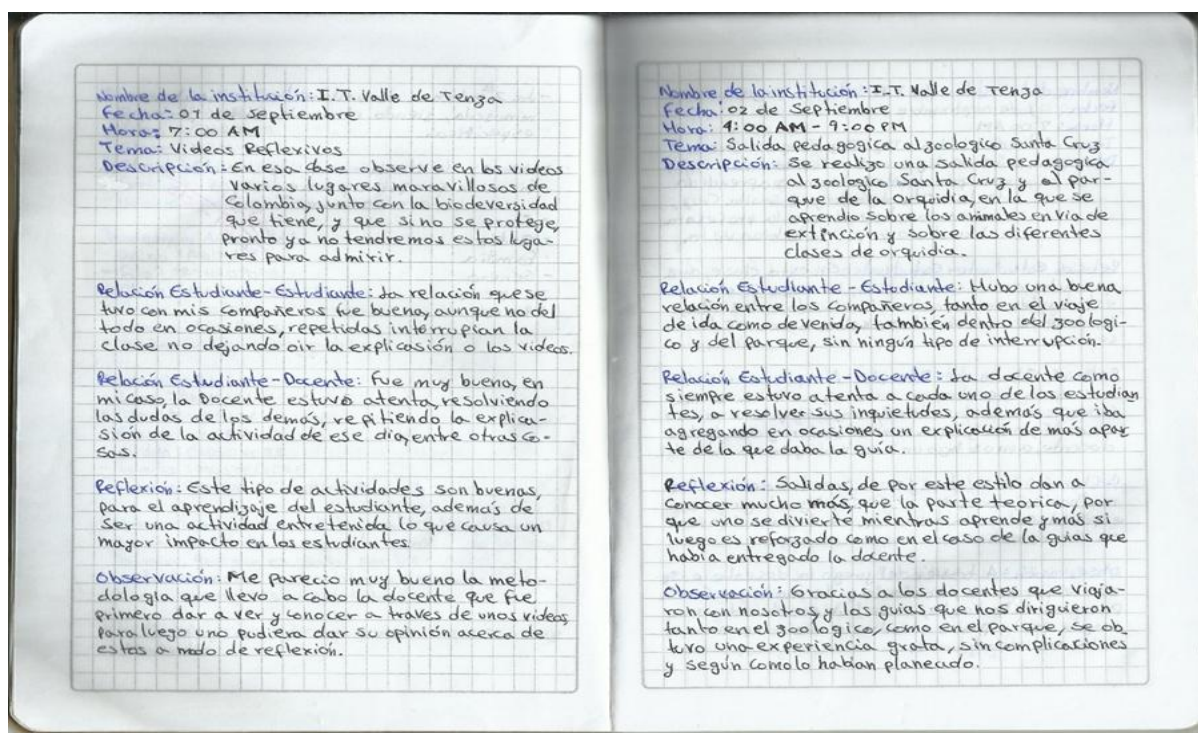 Nombre de la institución: I.T. Valle de Tenza
Fecha: 01 de septiembre
Hora: 7:00 AM
Tema: Videos Reflexivos
Descripción: En esa clase observe en los videos
varios lugares maravillosos de
Colombia, junto con la biodeversidad
que tiene, y que si no se protege,
pronto ya no tendremos estos luga-
res para admirir.
Relación Estudiante-Estudiante: La relación que se
tuvo con mis compañeros fue buena, aunque no del
todo en ocasiones, repetidas interrupian la
clase no dejando oir la explicasión o los videos.
Relación Estudiante-Docente: Fue muy buena, en
mi caso, la Docente estuvo atenta, resolviendo
las dudas de los demás, repitiendo la explica-
sión de la actividad de ese dia, entre otras co-
sas.
Reflexión: Este tipo de actividades son buenas,
para el aprendizaje del estudiante, además de
ser una actividad entretenida lo que causa un
mayor impacto en los estudiantes.
Observación: Me parecio muy bueno la meto-
dologia que llevo a cabo la docente que fue
primero dar a ver y conocer a traves de unos videos,
para luego uno pudiera dar su opinión acerca de
estos a modo de reflexión.
Nombre de la institución: I.T. Valle de Tenza
Fecha: 02 de Septiembre
Hora: 4:00 AM - 9:00 PM
Tema: Salida pedagogica al zoologico Santa Cruz
Descripción: Se realizo una salida pedagogica
al zoologico Santa Cruz y al par-
que de la orquidia, en la que se
aprendio sobre los animales en via de
extinción y sobre las diferentes
clases de orquidia.
Relación Estudiante - Estodiante: Hubo una buena
relación entre los compañeros, tanto en el viaje
de ida como de venida, también dentro del zoologi-
co y del parque, sin ningún tipo de interrupción.
Relación Estudiante - Docente: La docente como
siempre estuvo atenta a cada uno de los estudian
tes, a resolver sus inquietudes, además que iba
agregando en ocasiones un explicación de más apar
te de la que daba la guía.
Reflexión: Salidas, de por este estilo dan a
conocer mucho más, que la parte teorica, por
que uno se divierte mientras aprende y más si
luego es reforzado como en el caso de la guias que
habia entregado la docente.
Observación: Gracias a los docentes que viaja-
ron con nosotros y los guias que nos dirigueron
tanto en el zoologico, como en el parque, se ob
tuvo una experiencia grata, sin complicaciones
y según como lo habian planeado.